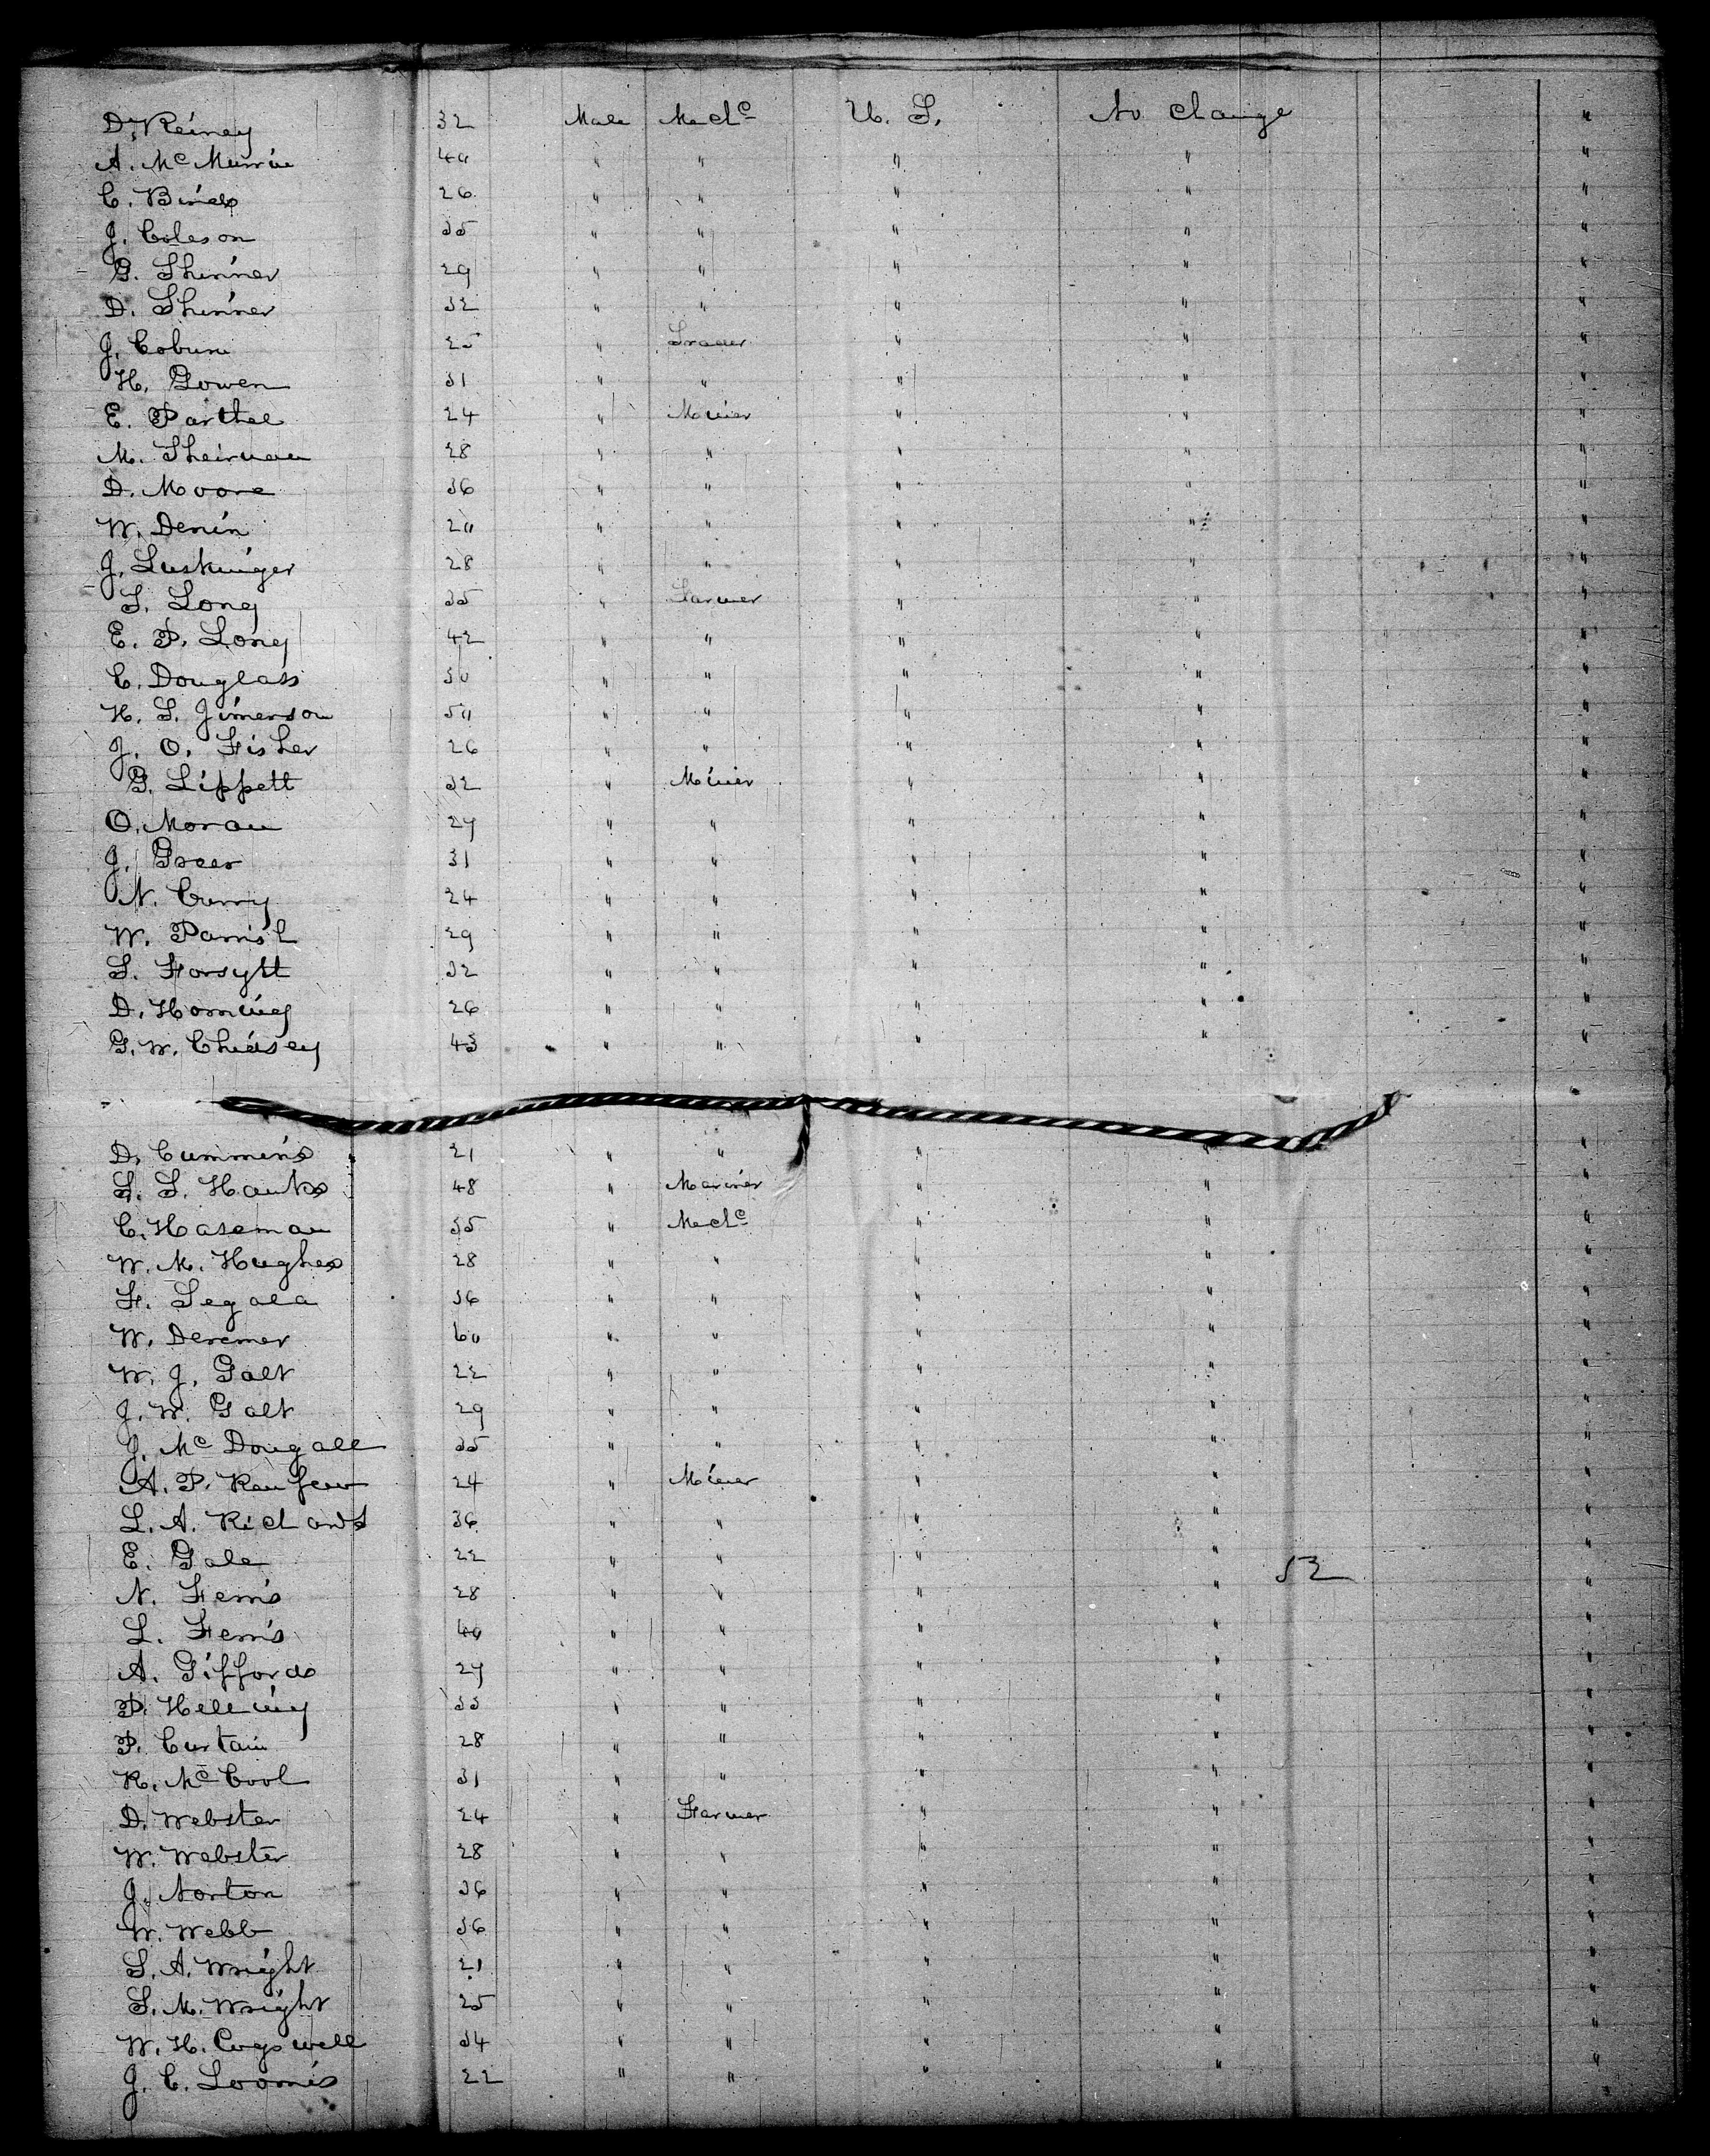 D. Reiney 32 Male Mechc U. S. No change "
A. McMurrin 40 " " " " "
C. Binds 26 " " " " "
J. Coleson 35 " " " " "
G. Shinner 29 " " " " "
D. Shinner 32 " " " " "
J. Coburn 25 " Trader " " "
H. Gowen 31 " " " " "
E. Parthel 24 " Miner " " "
M. Sheirman 28 " " " " "
D. Moore 36 " " " " "
W. Denin 20 " " " " "
J. Luskinger 28 " " " " "
S. Long 35 " Farmer " " "
E. P. Long 42 " " " " "
C. Douglass 30 " " " " "
H. S. Jimerson 50 " " " " "
J. O. Fisher 26 " " " " "
G. Lippett 32 " Miner " " "
O. Moran 27 " " " " "
J. Greer 31 " " " " "
N. Curry 24 " " " " "
W. Parrish 29 " " " " "
S. Forsyth 32 " " " " "
D. Horning 26 " " " " "
G. W. Chidsey 43 " " " " "
D. Cummins 21 " " " " "
S. S. Hawks 48 " Mariner " " "
C. Haseman 35 " Mechc " " "
W. M. Hughes 28 " " " " "
F. Segala 36 " " " " "
W. Deremer 60 " " " " "
W. J. Galt 22 " " " " "
J. W. Galt 29 " " " " "
J. McDougall 35 " " " " "
A. P. 24 " Miner " " "
L. A. Richards 36 " " " " "
E. Gale 22 " " " " "
52
N. Ferris 28 " " " " "
L. Ferris 40 " " " " "
A. Giffords 27 " " " " "
P. Helling 33 " " " " "
P. Curtain 28 " " " " "
R. McCool 31 " " " " "
D. Webster 24 " Farmer " " "
W. Webster 28 " " " " "
J. Norton 36 " " " " "
W. Webb 36 " " " " "
S. A. Wright 21 " " " " "
S. M. Wright 25 " " " " "
W. H. Cogswell 34 " " " " "
J. C. Loomis 22 " " " " "